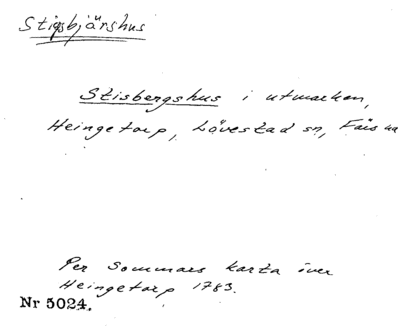 Stigsbjärshus
Stisbergshus i utmarken,
Heingetorp, Lövestad sn, Färs hd
Per Sommars karta över
Heingetorp 1783.
Nr 5024.